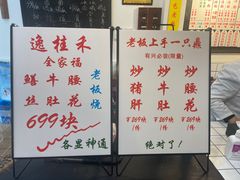 逸桂禾
全家福
鳝牛腰
丝肚花
老板烧
699块
各显神通
老板上手一只鼎
有兴必尝(限量)
炒炒炒
猪牛腰
肝肚花
¥369块 ¥369块 ¥369块
/件 /件 /件
绝对了!